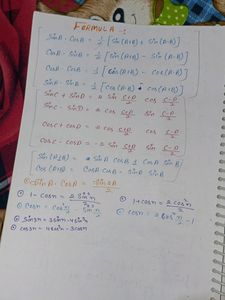 FORMULA :-
SinA · CosB = 1/2 [Sin(A+B) + Sin(A-B)]
CosA · SinB = 1/2 [Sin(A+B) - Sin(A-B)]
CosA · CosB = 1/2 [cos(A+B) + cos(A-B)]
SinA · SinB = 1/2 [cos(A-B) - cos(A+B)]
SinC + SinD = 2 sin C+D/2 cos C-D/2
SinC - SinD = 2 cos C+D/2 sin C-D/2
CosC + cosD = 2 cos C+D/2 cos C-D/2
CosC - cosD = -2 sin C+D/2 sin C-D/2
Sin(A±B) = Sin A CosB ± CosA SinB
Cos(A±B) = CosA CosB Sin A SinB
SinA · CosA = Sin2A/2
1 - cosx = 2 sin² x/2
1 + cosx = 2 cos² x/2
Cosx = cos² x/2 - sin² x/2
cosx = 2 cos² x/2 - 1
Sin3x = 3sinx - 4sin³x
cos3x = 4cos³x - 3cosx